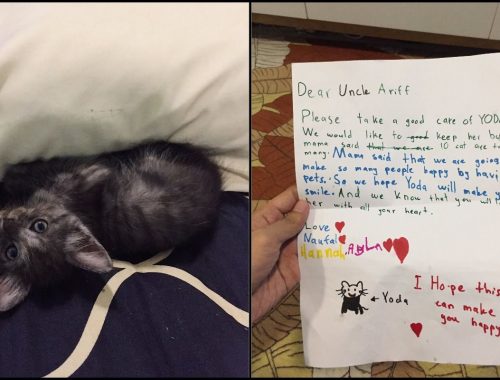 Dear Uncle Ariff
Please take a good care of YODA
We would like to good keep her bu
mama said that we are 10 cat are to
many. Mama said that we are going
make so many people happy by havi
pets. So we hope Yoda will make y
smile. And we know that you will
her with all your heart.
Love
Naufal
Hannah
← Yoda
I Hope this
can make
you happy